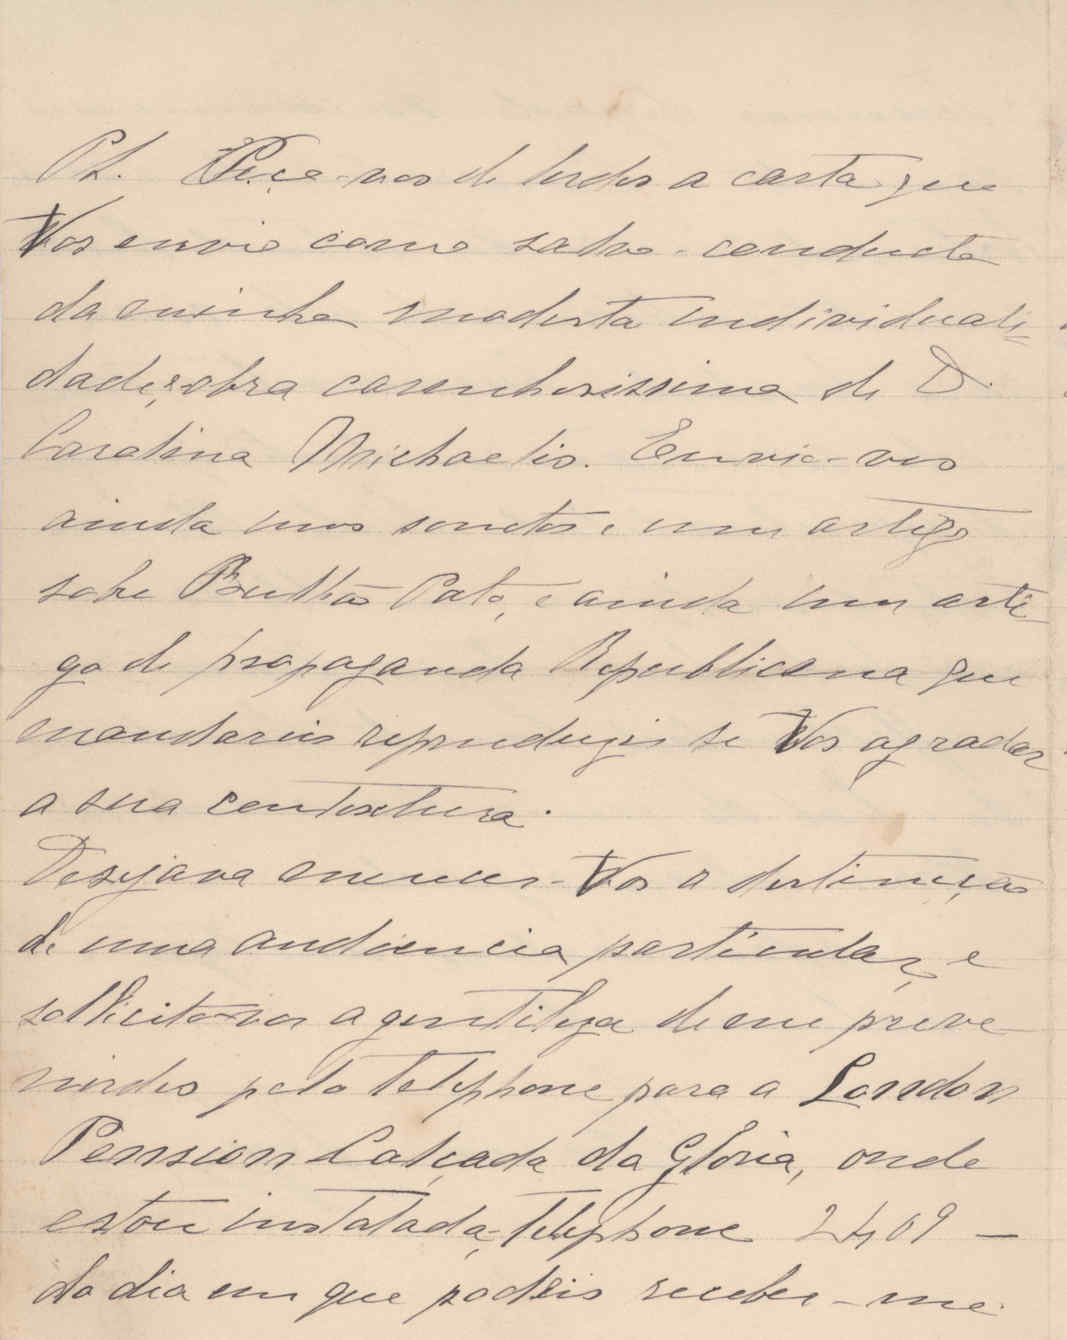 P.S. Peço-vos de lerdes a carta que
Vos envio como salvo-conducto
da minha modesta individuali=
dade, obra carinhosissima de D.
Carolina Michaelis. Envio-vos
ainda uns sonetos, um artigo
sobre Bulhão Pato, e ainda um arti-
go de propaganda Republicana que
mandareis reproduzir se Vos agradar
a sua contextura.
Desejava merecer-Vos a distincção
de uma audiencia particular, e
sollicito-vos a gentileza de me preve-
nirdes pelo telephone para a London
Pension Calçada da Gloria, onde
estou instalada, telephone 2409 —
do dia em que podeis receber-me.